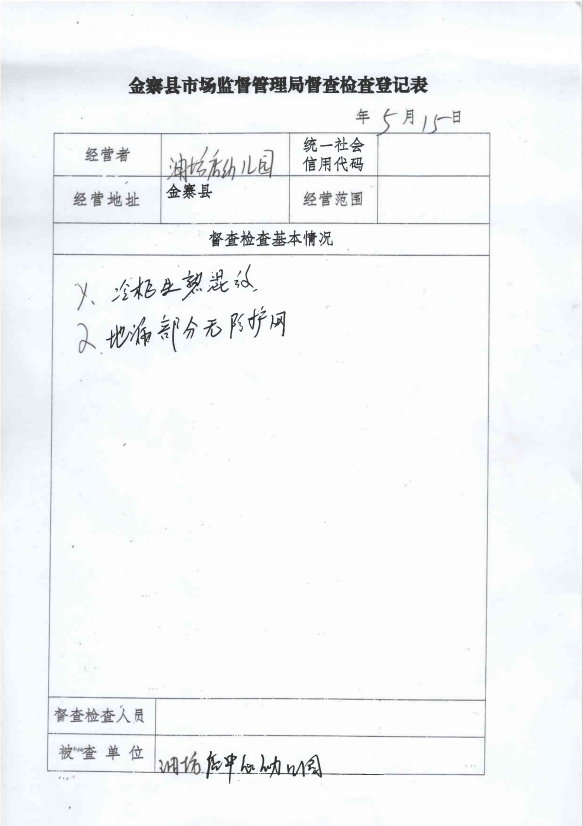 金寨县市场监督管理局督查检查登记表
年 5 月 15 日
经营者 油坊店幼儿园 统一社会信用代码
经营地址 金寨县 经营范围
督查检查基本情况
1、冷柜生熟混放
2、地漏部分无防护网
督查检查人员
被查单位 油坊店中心幼儿园